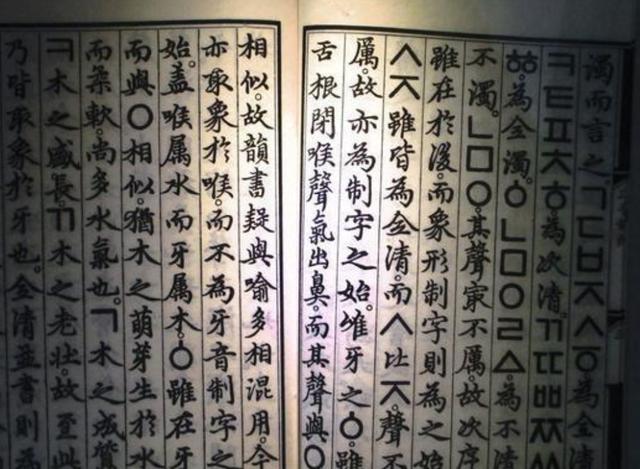 濁而言之。ㄱㄷㅂㅈㅅㆆ為全清
ㅋㅌㅍㅊㅎ。為次清。ㄲㄸㅃㅉㅆ
ㆅ。為全濁。ㆁㄴㅁㅇㄹㅿ。為不清
不濁。ㄴㅁㅇ。其聲㝡不厲。故次序
雖在於後。而象形制字則為之始
ㅅㅈ雖皆為全清。而ㅅ比ㅈ。聲不
厲。故亦為制字之始。唯牙之ㆁ。雖
舌根閉喉聲氣出鼻。而其聲與ㅇ
相似。故韻書疑與喻多相混用。今
亦取象於喉。而不為牙音制字之
始。盖喉属水而牙属木。ㆁ雖在牙
而與ㅇ相似。猶木之萌芽生於水
而柔軟。尚多水氣也。ㄱ木之成質
ㅋ木之盛長。ㄲ木之老壯。故至此
乃皆取象於牙也。全清並書則為